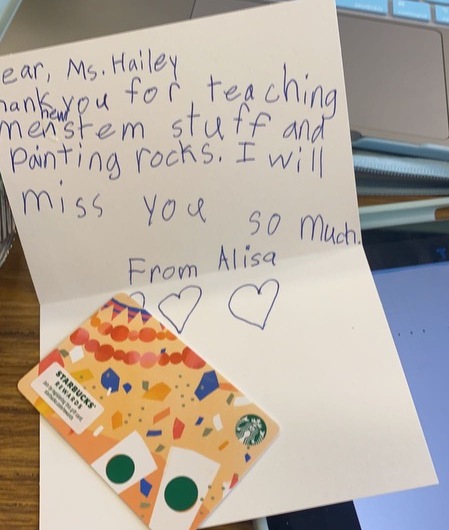 ear, Ms. Hailey
hank you for teaching
new
me stem stuff and
painting rocks. I will
miss you
so much.
From Alisa
STARBUCKS®
REWARDS